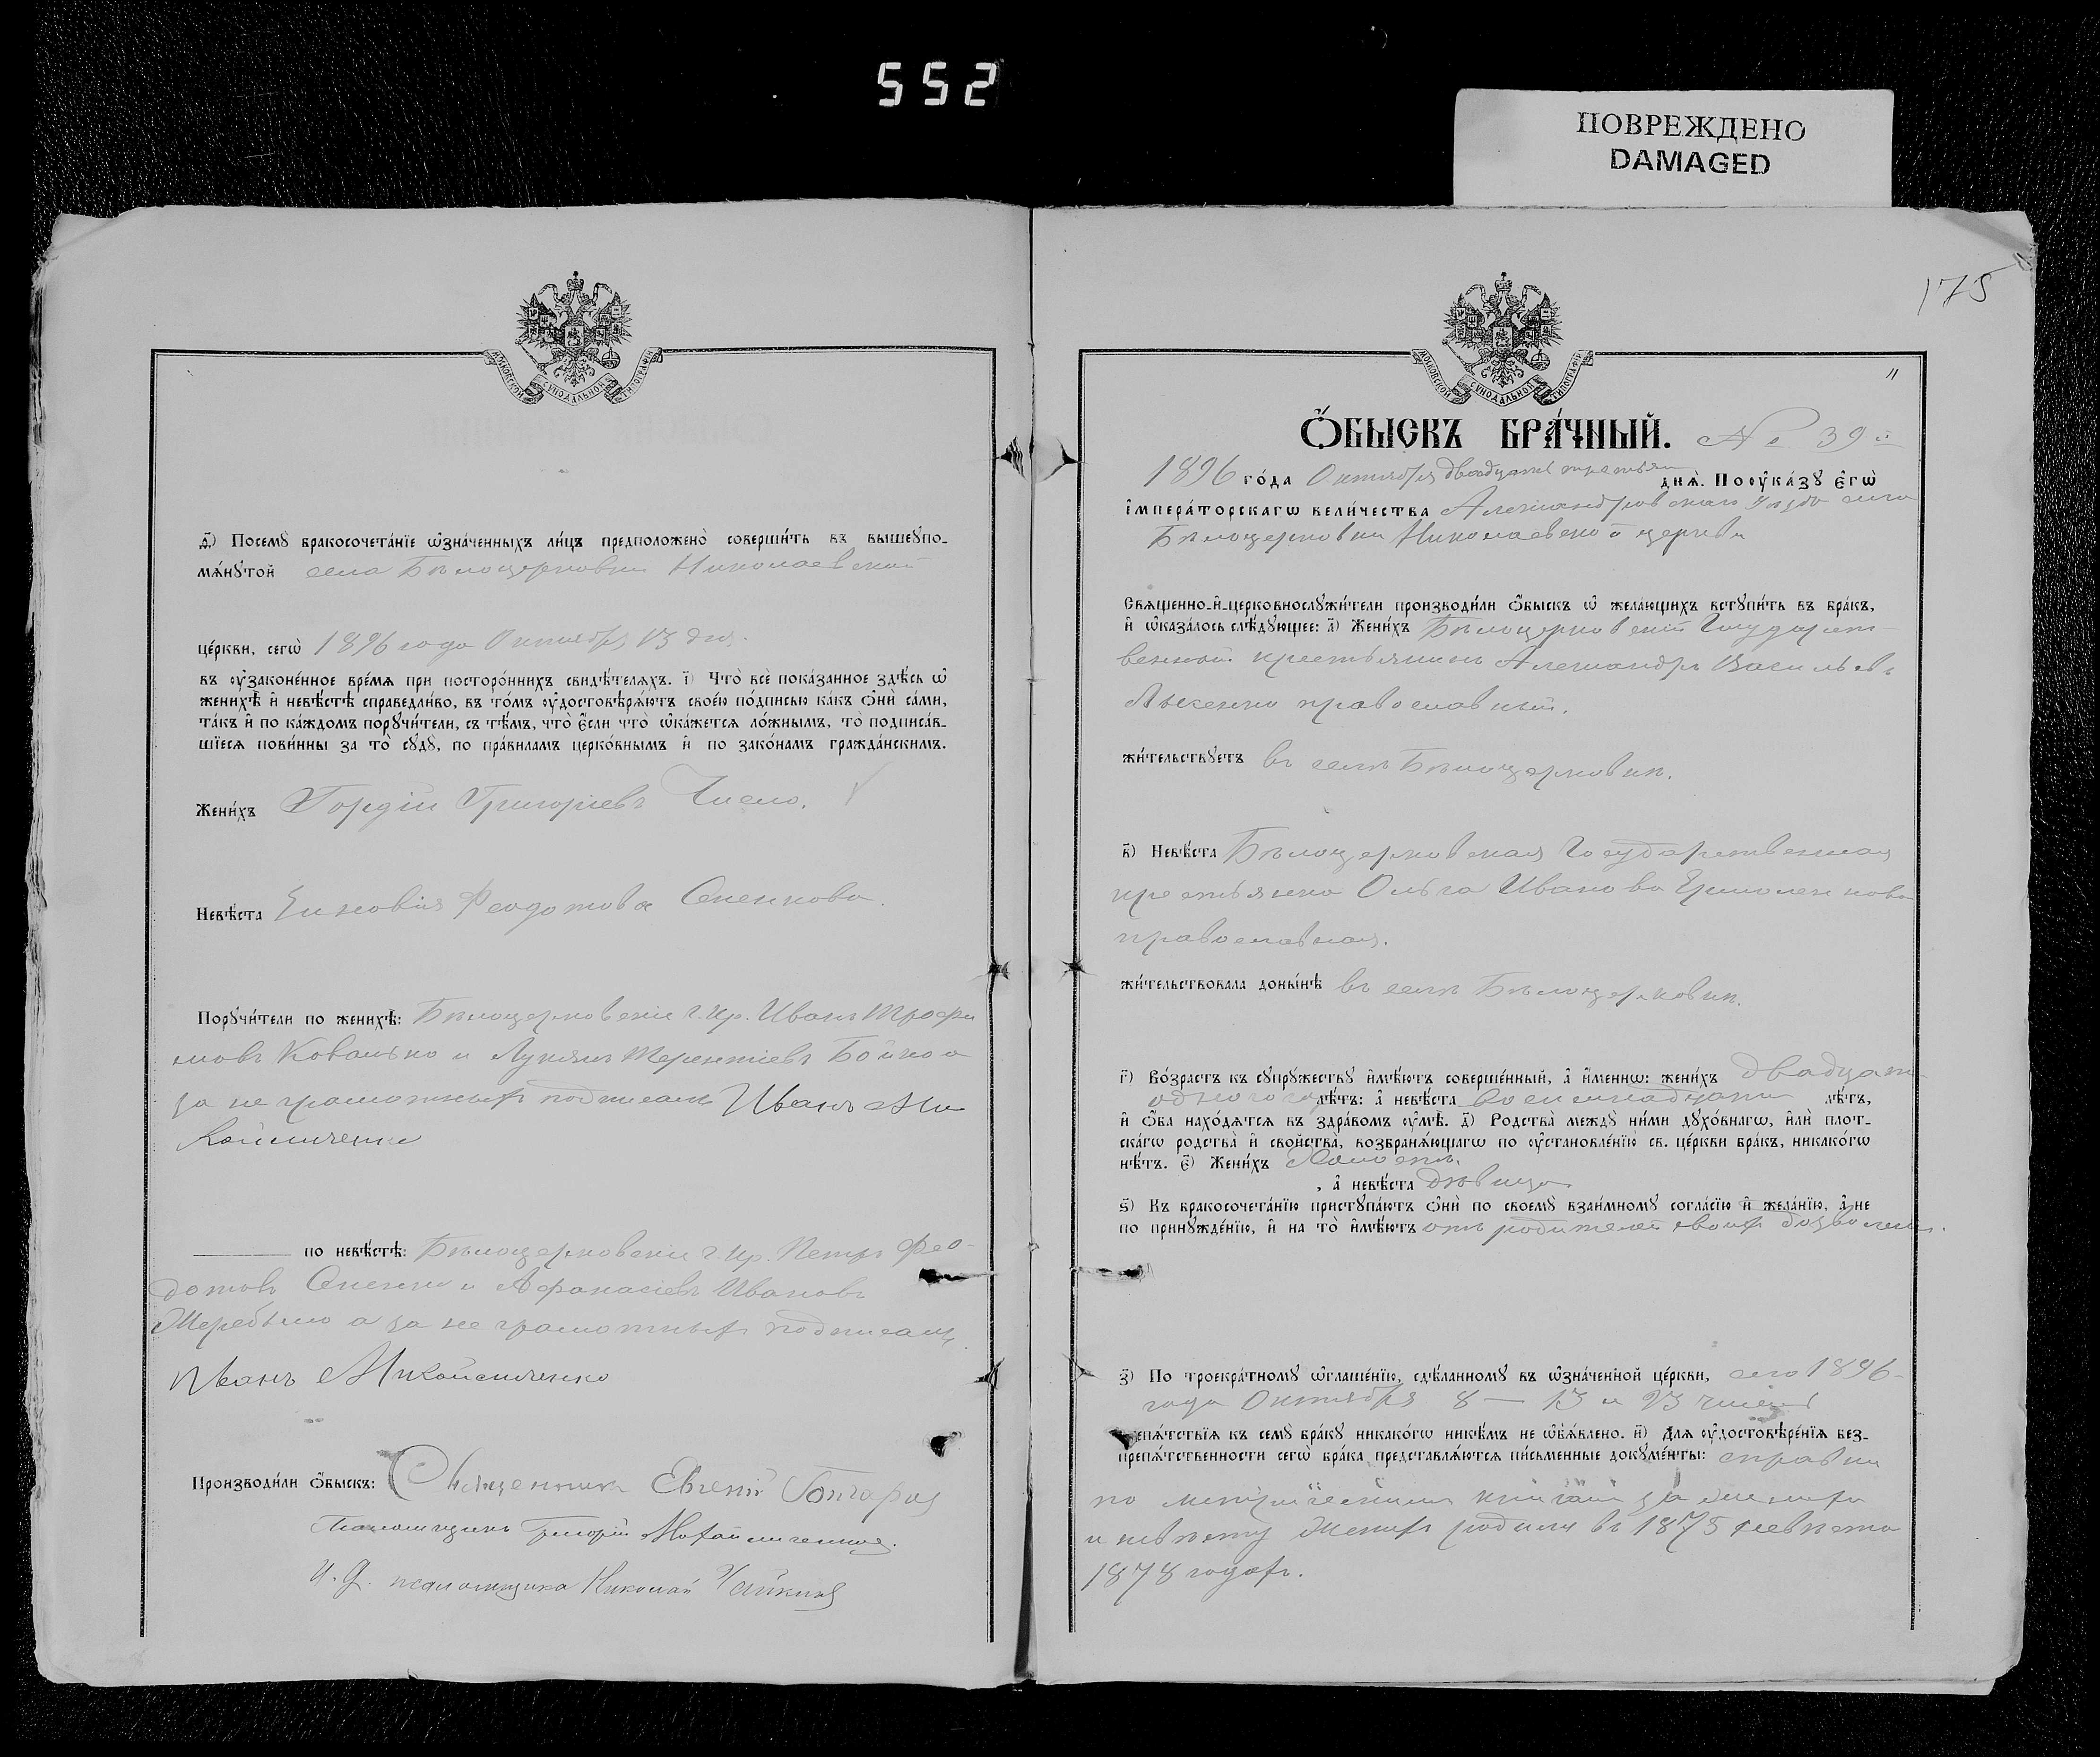 552
ПОВРЕЖДЕНО
DAMAGED
МОСКОВСКОЙ СѴНОДАЛЬНОЙ ТИПОГРАФІИ
ѳ҃) Посемꙋ̀ бракосочета́нїе ѡ҆зна́ченныхъ ли́цъ предположено̀ соверши́ть въ вышеꙋпо-
мѧ́нꙋтой села Бѣлоцерковки Николаевской
це́ркви, сегѡ̀ 1896 года Октября 23 дня.
въ ᲂу҆зако́ненное вре́мѧ при посторо́ннихъ свидѣ́телѧхъ. і҃) Что̀ всѐ пока́занное здѣ́сь ѡ҆
женихѣ̀ и҆ невѣ́стѣ справедли́во, въ то́мъ ᲂу҆достовѣрѧ́ютъ свое́ю по́дписью ка́къ ѻ҆нѝ са́ми,
та́къ и҆ по ка́ждомъ порꙋчи́тели, съ тѣ́мъ, что̀ є҆́сли что̀ ѡ҆ка́жетсѧ ло́жнымъ, то̀ подписа́в-
шїесѧ пови́нны за то̀ сꙋдꙋ̀, по пра́виламъ церко́внымъ и҆ по зако́намъ гражда́нскимъ.
Жени́хъ Гордій Григоріевъ Число.
Невѣ́ста Зиновія Феодотова Сненкова.
Порꙋчи́тели по женихѣ̀: Бѣлоцерковскіе г. кр. Иванъ Трофи
мовъ Ковалько и Лукьянъ Терентіевъ Бойко а
за не грамотныхъ подписалъ Иванъ Ми
хойличенко
по невѣ́стѣ: Бѣлоцерковскіе г. кр. Петръ Фео-
дотовъ Сненко и Афанасіевъ Ивановъ
Жеребыло а за не грамотныхъ подписалъ
Иванъ Михойличенко
Производи́ли ѻ҆́быскъ: Священникъ Евгеній Гончаровъ
Псаломщикъ Григорій Михайличенко.
И. д. псаломщика Николай Чайкинъ
175
МОСКОВСКОЙ СѴНОДАЛЬНОЙ ТИПОГРАФІИ
Ѻ҆́БЫСКЪ БРА́ЧНЫЙ. № 39й
1896 го́да Октября двадцать третьяго днѧ̀. По ᲂу҆ка́зꙋ є҆гѡ̀
і҆мпера́торскагѡ вели́чества Александровскаго уѣзда села
Бѣлоцерковки Николаевской церкви
Свѧще́нно-и҆-церковнослꙋжи́тели производи́ли ѻ҆́быскъ ѡ҆ жела́ющихъ встꙋпи́ть въ бра́къ,
и҆ ѡ҆каза́лось слѣ́дꙋющее: а҃) Жени́хъ Бѣлоцерковскій Государст-
венной крестьянинъ Александръ Васильевъ
Лысенко православный.
жи́тельствꙋетъ въ селѣ Бѣлоцерковкѣ.
в҃) Невѣ́ста Бѣлоцерковская Государственная
крестьянка Ольга Иванова Ермоленкова
православная.
жи́тельствовала доны́нѣ въ селѣ Бѣлоцерковкѣ.
г҃) Во́зрастъ къ сꙋпрꙋ́жествꙋ и҆мѣ́ютъ соверше́нный, а҆ и҆́меннѡ: жени́хъ двадцати
одного го лѣ́тъ: а҆ невѣ́ста восемнадцати лѣ́тъ,
и҆ ѻ҆́ба нахо́дѧтсѧ въ здра́вомъ ᲂу҆мѣ̀. д҃) Родства̀ междꙋ̀ ни́ми дꙋхо́внагѡ, и҆лѝ плот-
ска́гѡ родства̀ и҆ сво́йства, возбранѧ́ющагѡ по ᲂу҆становле́нїю св. це́ркви бра́къ, никако́гѡ
нѣ́тъ. є҃) Жени́хъ Холостъ,
, а҆ невѣ́ста дѣвица.
ѕ҃) Къ бракосочета́нїю пристꙋпа́ютъ ѻ҆нѝ по своемꙋ̀ взаи́мномꙋ согла́сїю и҆ жела́нїю, а҆ не
по принꙋжде́нїю, и҆ на то̀ и҆мѣ́ютъ отъ родителей своихъ дозволеніе.
з҃) По троекра́тномꙋ ѡ҆глаше́нїю, сдѣ́ланномꙋ въ ѡ҆зна́ченной це́ркви, сего 1896-
года Октября 8 — 13 и 23 чиселъ
епѧ́тствїѧ къ семꙋ̀ бра́кꙋ никако́гѡ никѣ́мъ не ѡ҆б̾ѧ́влено. и҃) Длѧ ᲂу҆достовѣре́нїѧ без-
препѧ́тственности сегѡ̀ бра́ка представлѧ́ютсѧ пи́сьменные докꙋме́нты: справки
по метрическимъ книгамъ за жениха
и невѣсту Женихъ родился въ 1875 невѣста
1878 годахъ.